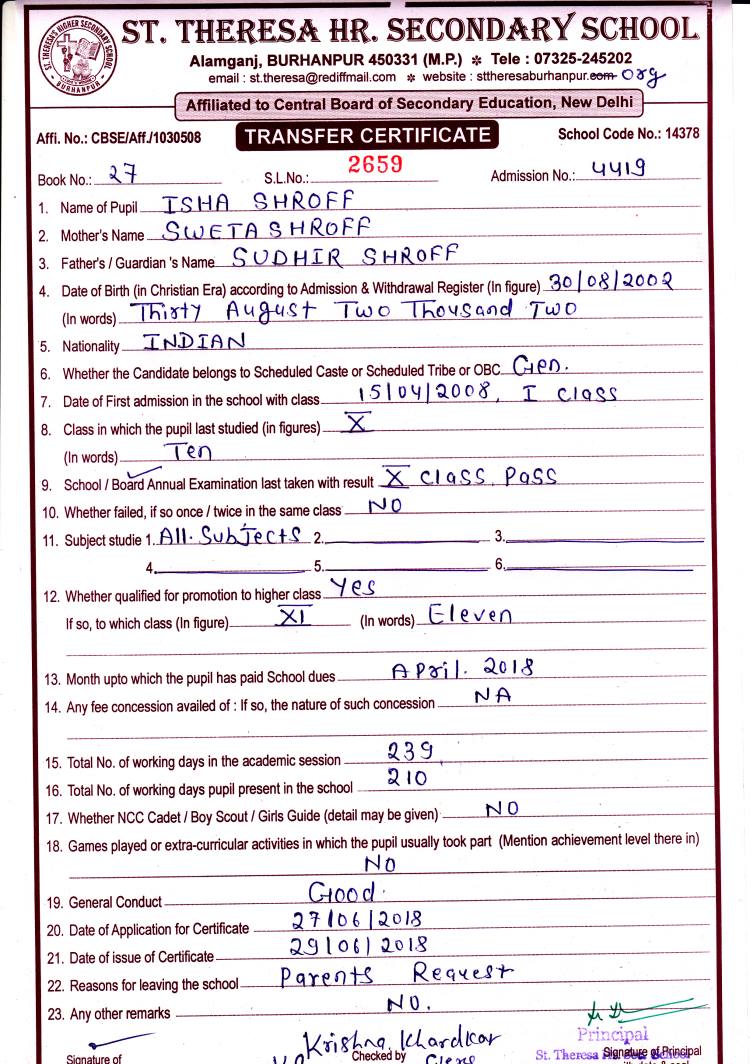 ST. THERESA HR. SECONDARY SCHOOL
ST. THERESA'S HIGHER SECONDARY SCHOOL
BURHANPUR
Alamganj, BURHANPUR 450331 (M.P.) * Tele : 07325-245202
email : st.theresa@rediffmail.com * website : sttheresaburhanpur.com org
Affiliated to Central Board of Secondary Education, New Delhi
Affi. No.: CBSE/Aff./1030508 TRANSFER CERTIFICATE School Code No.: 14378
Book No.: 27 S.L.No.: 2659 Admission No.: 4419
1. Name of Pupil ISHA SHROFF
2. Mother's Name SWETA SHROFF
3. Father's / Guardian 's Name SUDHIR SHROFF
4. Date of Birth (in Christian Era) according to Admission & Withdrawal Register (In figure) 30/08/2002
(In words) Thirty August Two Thousand Two
5. Nationality INDIAN
6. Whether the Candidate belongs to Scheduled Caste or Scheduled Tribe or OBC Gen.
7. Date of First admission in the school with class 15/04/2008, I Class
8. Class in which the pupil last studied (in figures) X
(In words) Ten
9. School / Board Annual Examination last taken with result X Class, Pass
10. Whether failed, if so once / twice in the same class NO
11. Subject studie 1. All. Subjects 2. 3.
4. 5. 6.
12. Whether qualified for promotion to higher class Yes
If so, to which class (In figure) XI (In words) Eleven
13. Month upto which the pupil has paid School dues April. 2018
14. Any fee concession availed of : If so, the nature of such concession NA
15. Total No. of working days in the academic session 239
16. Total No. of working days pupil present in the school 210
17. Whether NCC Cadet / Boy Scout / Girls Guide (detail may be given) NO
18. Games played or extra-curricular activities in which the pupil usually took part (Mention achievement level there in)
NO
19. General Conduct Good.
20. Date of Application for Certificate 27/06/2018
21. Date of issue of Certificate 29/06/2018
22. Reasons for leaving the school Parents Request
23. Any other remarks NO.
Krishna Khardkar Principal
Signature of Checked by St. Theresa Signature of Principal